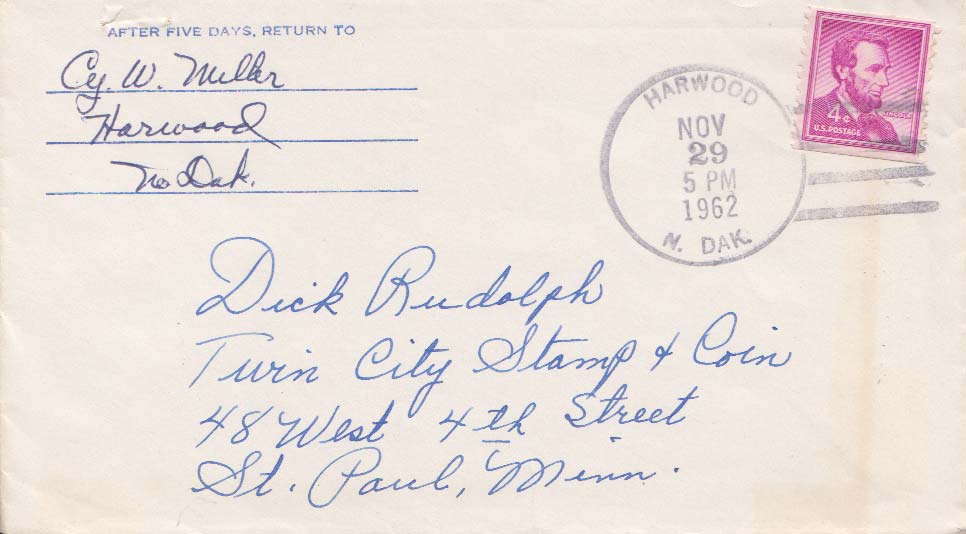 AFTER FIVE DAYS, RETURN TO
Cy. W. Miller
Harwood
No Dak.
HARWOOD
NOV
29
5 PM
1962
N. DAK.
LINCOLN
4¢
U.S. POSTAGE
Dick Rudolph
Twin City Stamp & Coin
48 West 4th Street
St. Paul, Minn.